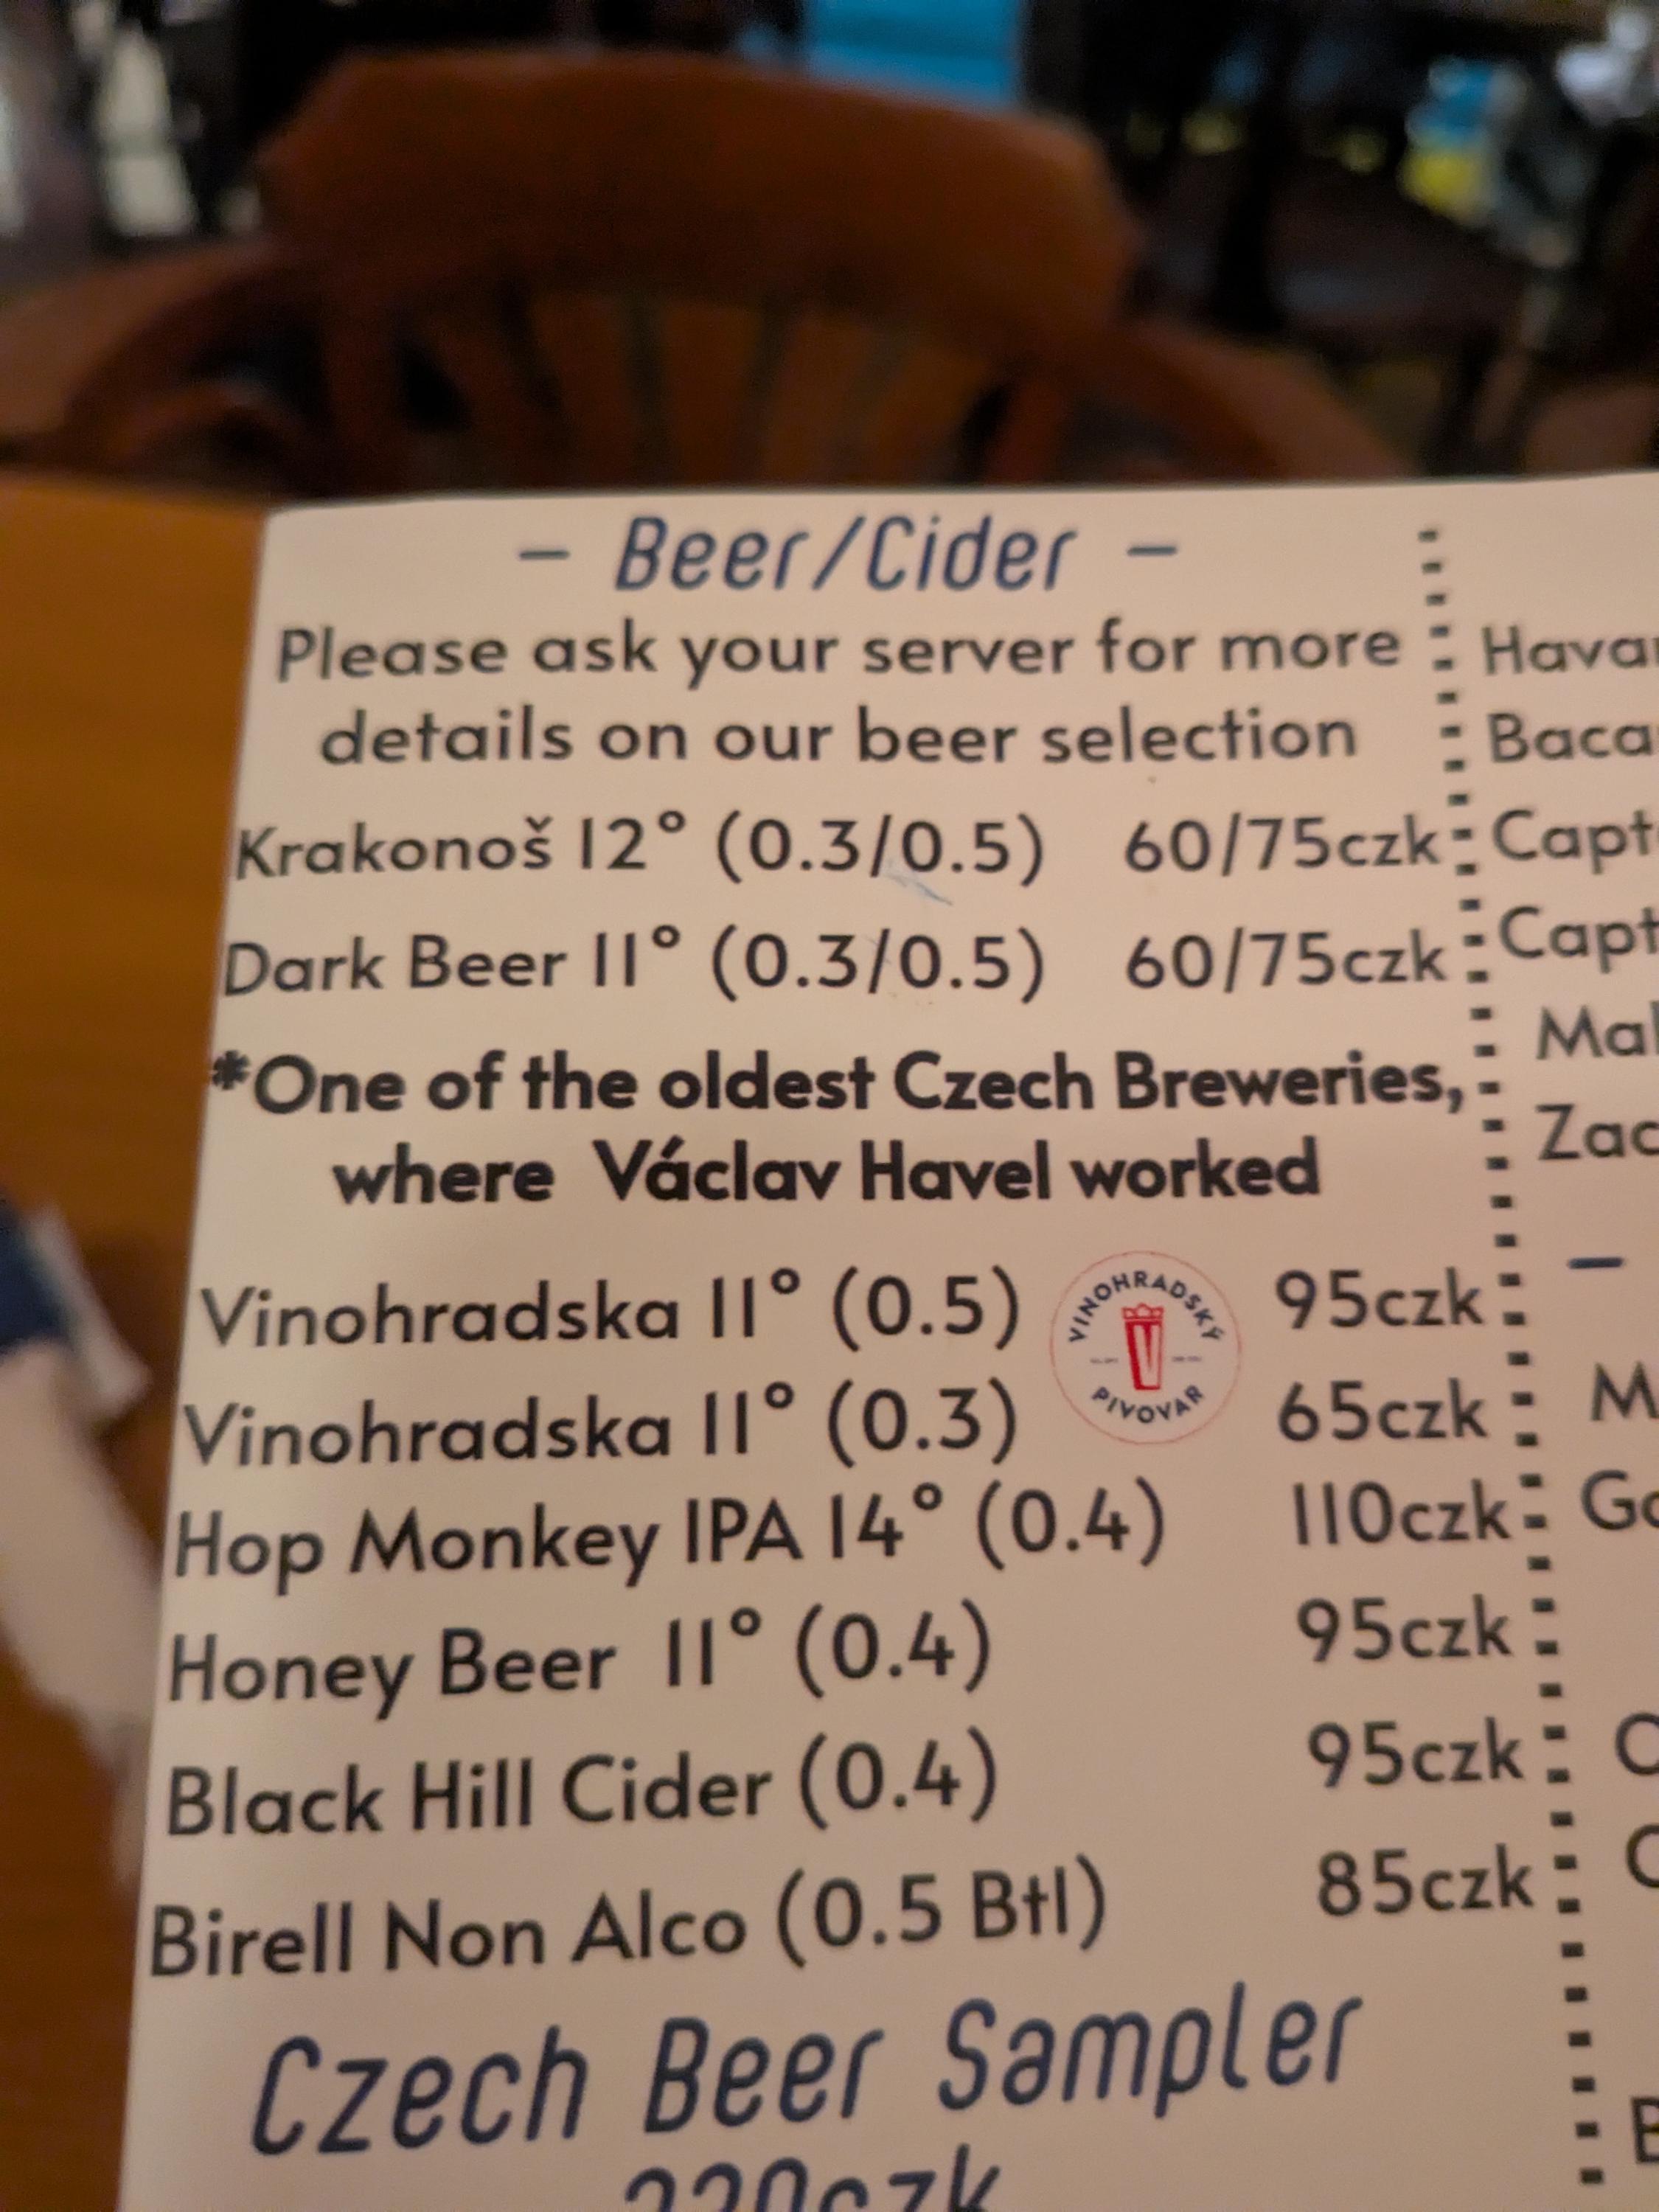 – Beer/Cider –
Please ask your server for more
details on our beer selection
Krakonoš 12° (0.3/0.5) 60/75czk
Dark Beer 11° (0.3/0.5) 60/75czk
*One of the oldest Czech Breweries,
where Václav Havel worked
Vinohradska 11° (0.5) 95czk
VINOHRADSKÝ
PIVOVAR
Vinohradska 11° (0.3) 65czk
Hop Monkey IPA 14° (0.4) 110czk
Honey Beer 11° (0.4) 95czk
Black Hill Cider (0.4) 95czk
Birell Non Alco (0.5 Btl) 85czk
Czech Beer Sampler